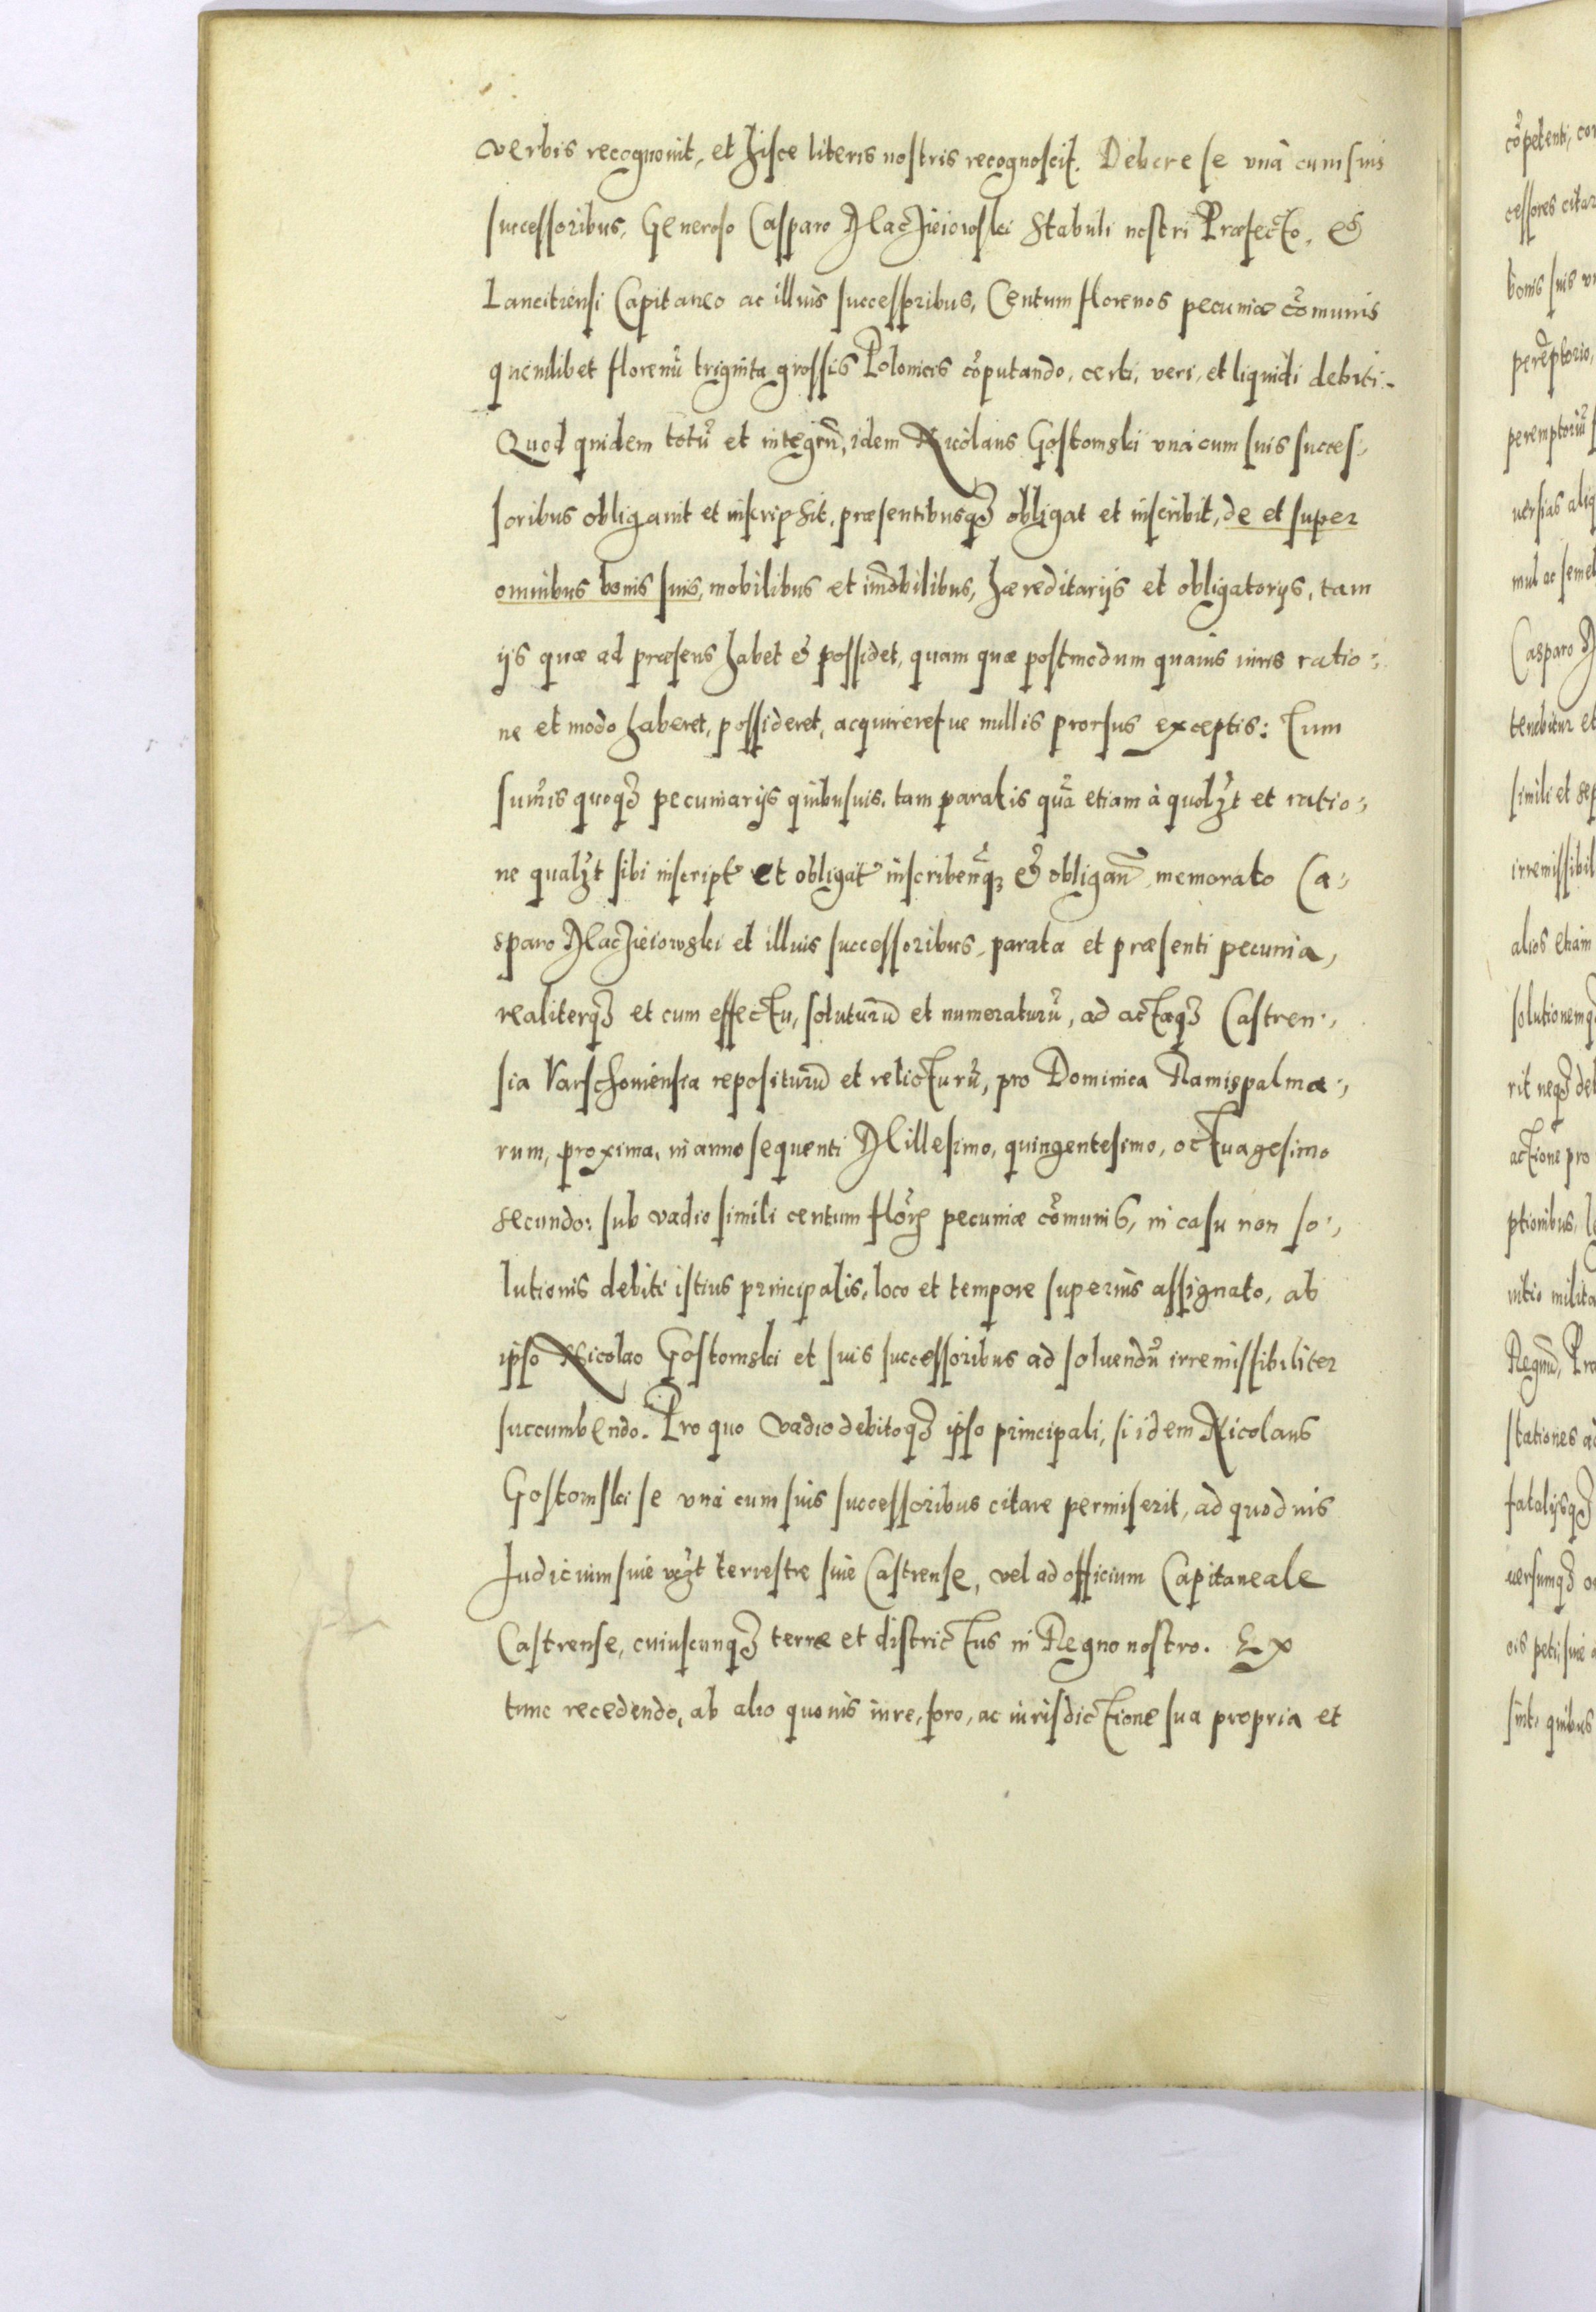 verbis recognouit, et hisce literis nostris recognoscit. Debere se vnà cum suis
successoribus, Generoso Casparo Maczieiowski Stabuli nostri Præfecto, et
Lancitiensi Capitaneo ac illius successoribus, Centum florenos pecuniæ cōmunis
quemlibet florenū triginta grossis Polonicis cōputando, certi, veri, et liquidi debiti.
Quod quidem totū et integrū, idem Nicolaus Gostomski vnà cum suis succes-
soribus obligauit et inscripsit, præsentibusqꝫ obligat et inscribit, de et super
omnibus bonis suis, mobilibus et im̄obilibus, hæreditarijs et obligatorijs, tam
ijs quæ ad præsens habet et possidet, quam quæ postmodum quauis iuris ratio-
ne et modo haberet, possideret, acquireretue nullis prorsus exceptis: Tum
sum̄is quoqꝫ pecuniarijs quibusuis, tam paratis quā etiam à quolꝫt et ratio-
ne qualꝫt sibi inscript et obligat inscribenqꝫ et obligan̄ memorato Ca-
sparo Maczieiowski et illius successoribus, parata et præsenti pecunia,
realiterqꝫ et cum effectu, soluturū et numeraturū, ad actaqꝫ Castren-
sia Varschouiensia repositurū et relicturū, pro Dominica Ramispalma-
rum, proxima, in anno sequenti Millesimo, quingentesimo, octuagesimo
secundo: sub vadio simili centum flōrꝫ pecuniæ cōmunis, in casu non so-
lutionis debiti istius principalis, loco et tempore superius assignato, ab
ipso Nicolao Gostomski et suis successoribus ad soluendū irremissibiliter
succumbendo. Pro quo vadio debitoqꝫ ipso principali, si idem Nicolaus
Gostomski se vnà cum suis successoribus citare permiserit, ad quoduis
Iudicium siue vꝫt terrestre siue Castrense, vel ad officium Capitaneale
Castrense, cuiuscunqꝫ terræ et districtus in Regno nostro. Ex
tunc recedendo, ab alio quouis iure, foro, ac iurisdictione sua propria et